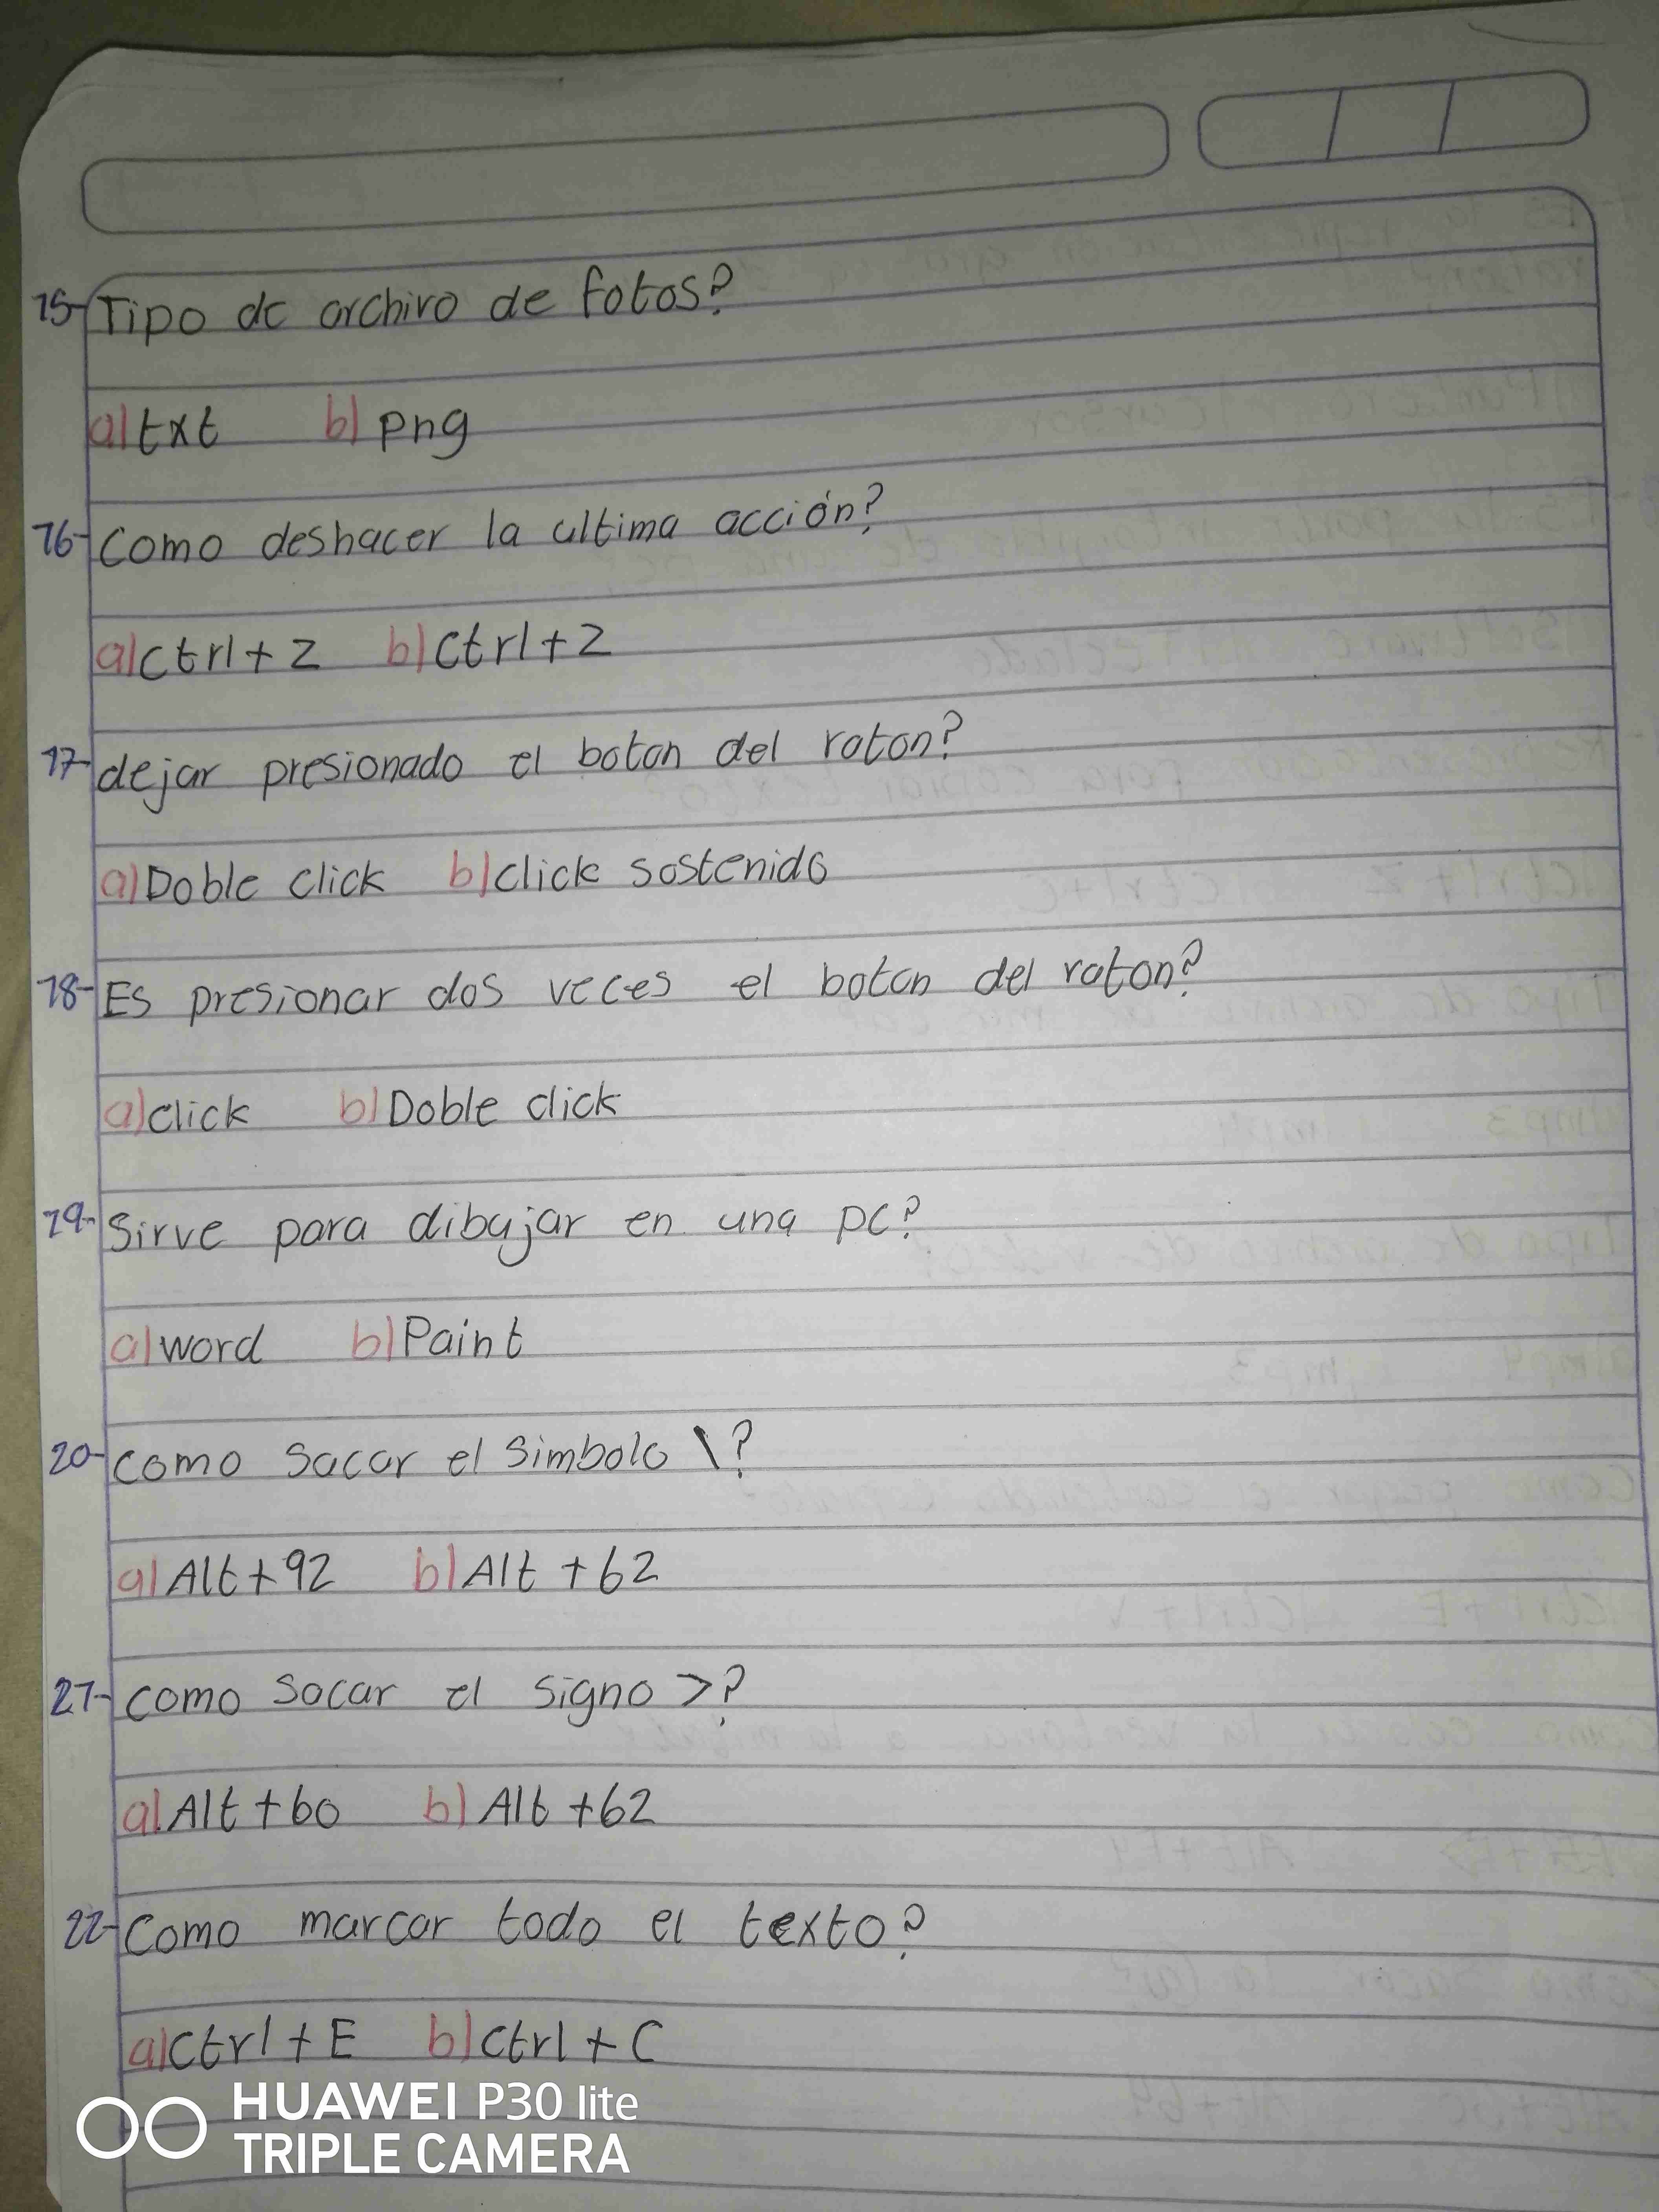 15- Tipo de archivo de fotos?
a) txt b) png
16- Como deshacer la ultima acción?
a) ctrl+z b) ctrl+z
17- dejar presionado el boton del raton?
a) Doble click b) click sostenido
18- Es presionar dos veces el boton del raton?
a) click b) Doble click
19- Sirve para dibujar en una pc?
a) word b) Paint
20- como sacar el simbolo \?
a) Alt+92 b) Alt +62
21- como sacar el signo >?
a) Alt+60 b) Alt+62
22- Como marcar todo el texto?
a) ctrl+E b) ctrl+C
HUAWEI P30 lite
TRIPLE CAMERA